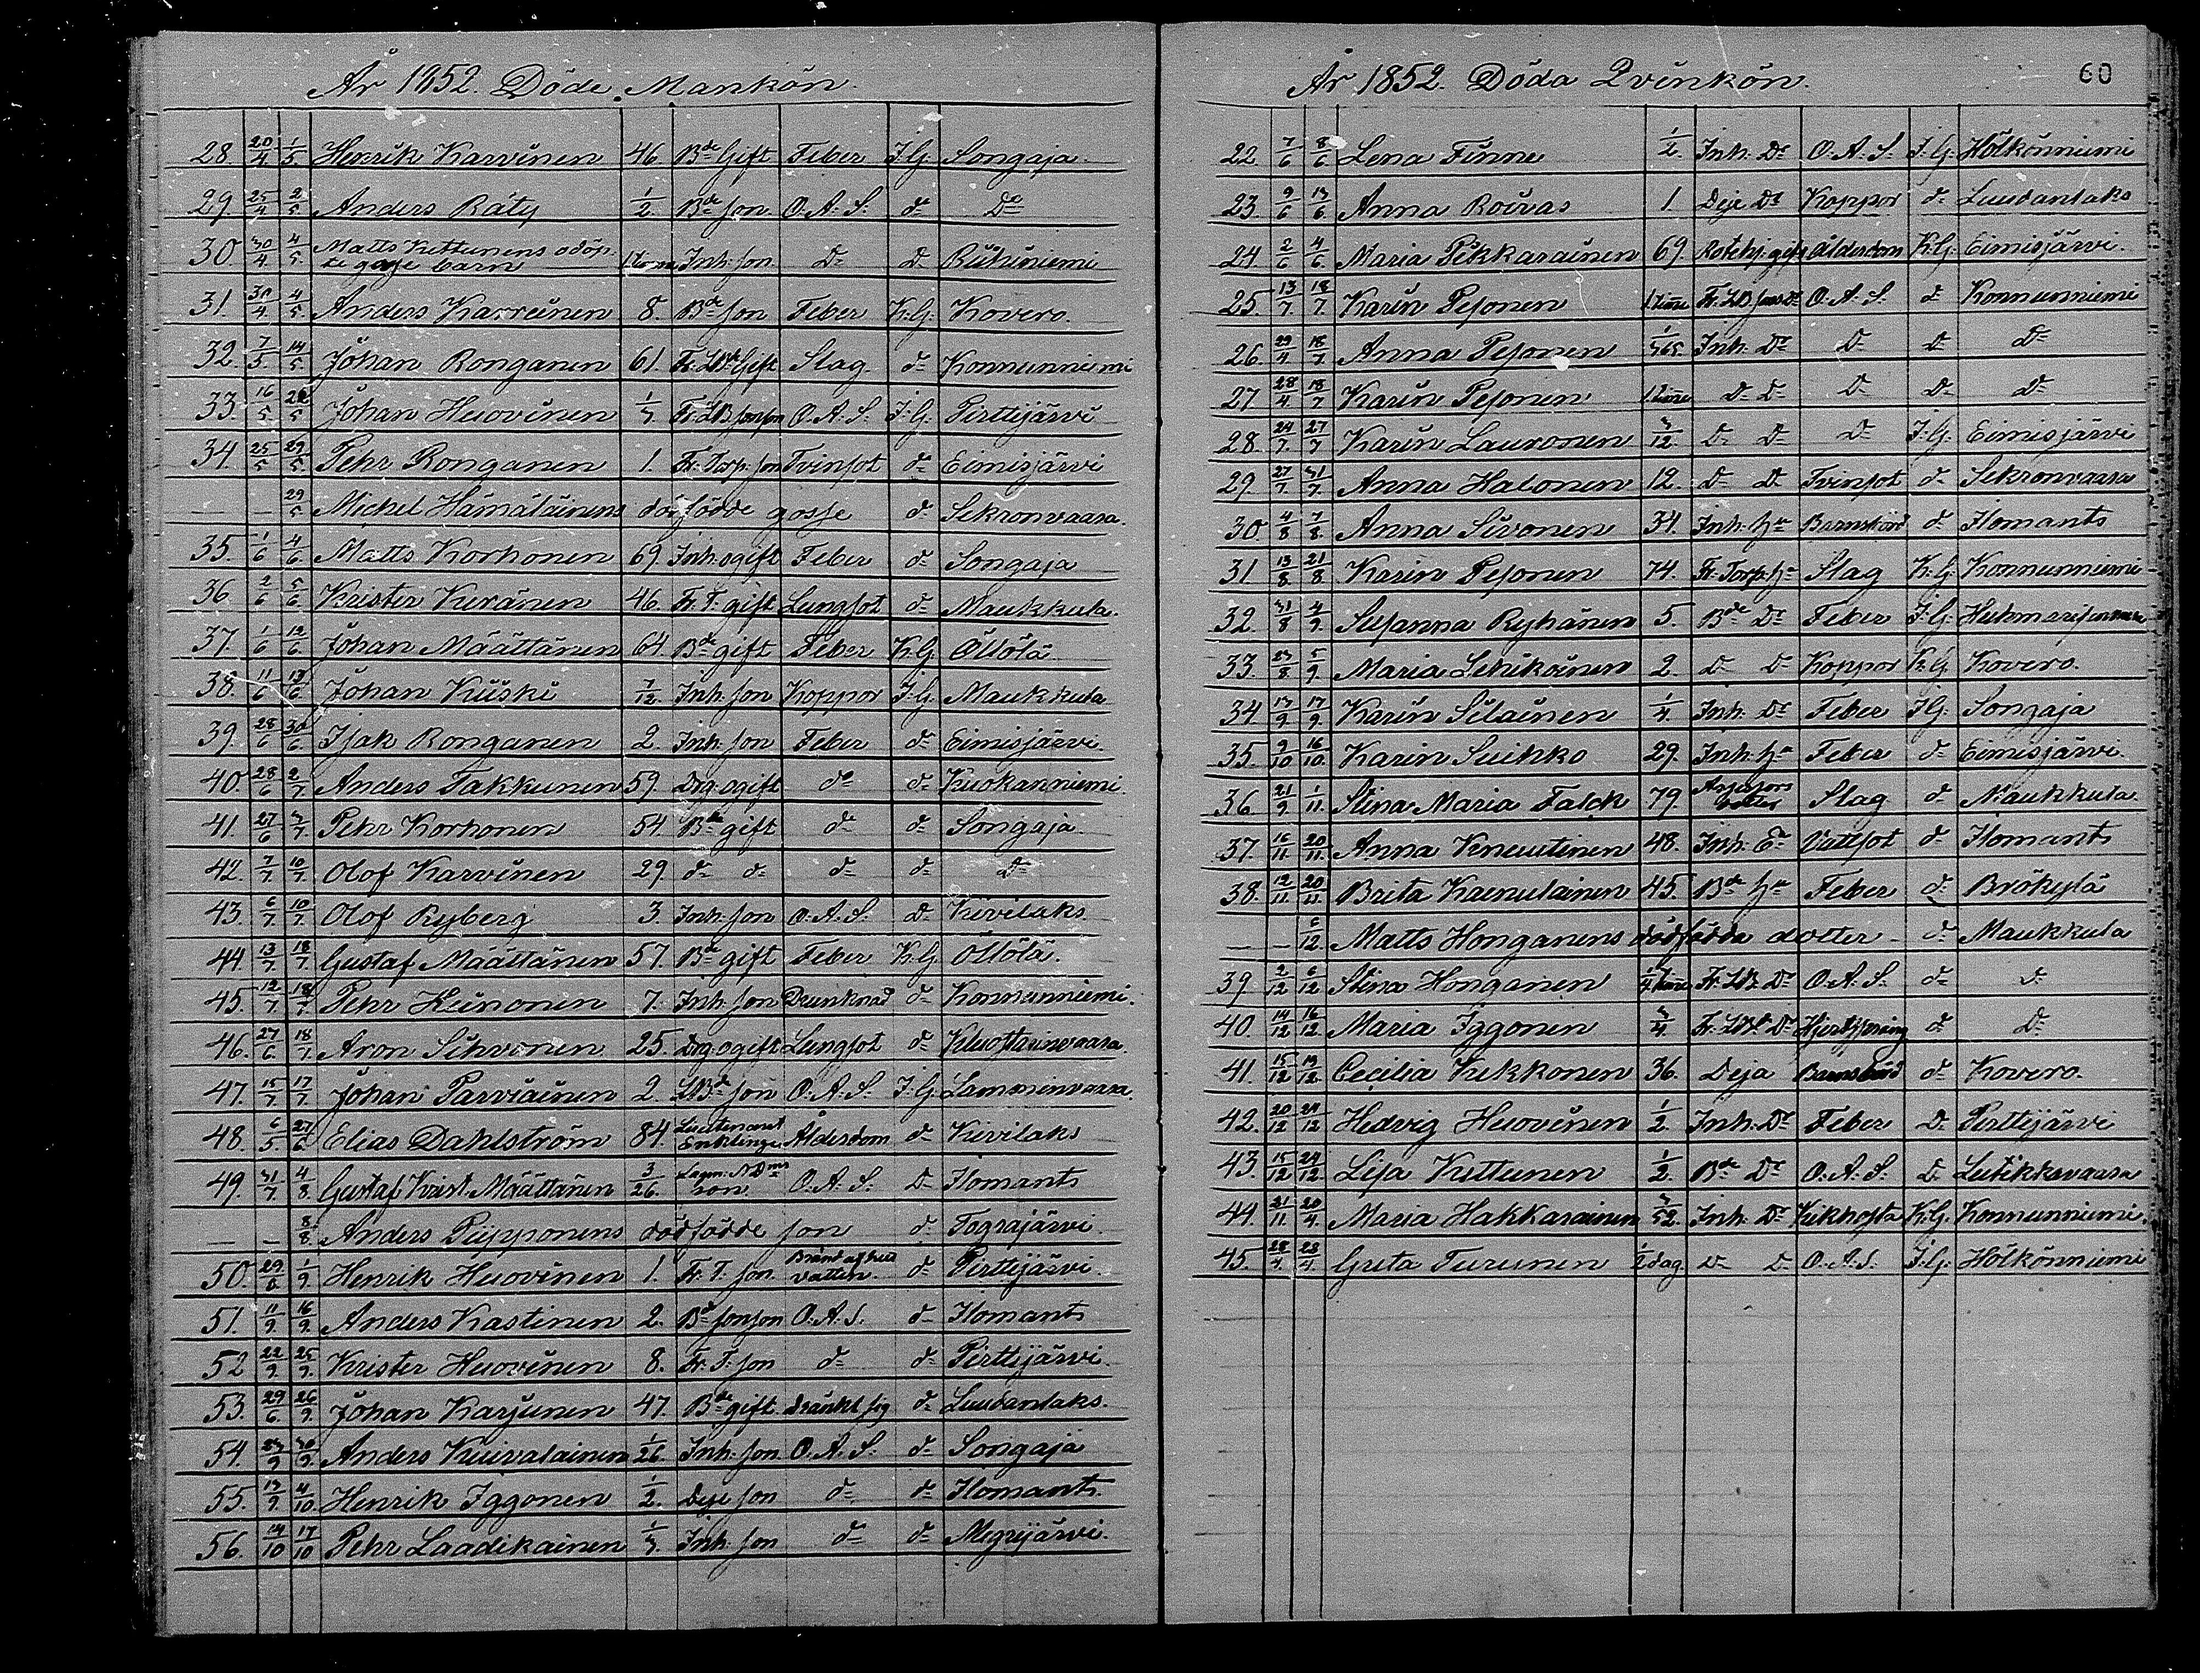 År 1852. Döde Mankön.
28. 20/4 1/5. Henrik Karvinen 46. Bde Gift Feber I:G: Songaja
29. 25/4 2/5 Anders Räty 1/2 Bde son O.A.S. do Do
30. 30/4 4/5. Matts Kuttunens odöp-
te gosse barn 1 timme Inh: son Do Do Riihiniemi
31. 30/4 4/5 Anders Karvinen 8. Bde son Feber K:G: Kovero.
32. 7/5 14/5. Johan Ronganen 61. Fr. LBde Gift Slag do Konnunniemi
33. 16/5 22/5 Johan Huovinen Fr. LB sonson O.A.S. I:G: Pirttijärvi
34. 25/5 29/5 Pehr Ronganen 1. Fr. Torp. son Tvinsot do Eimisjärvi
— — 29/5 Michel Hämäläinens dödfödde gosse do Sikronvaara.
35. 1/6 4/6. Matts Korhonen 69. Inh: ogift Feber do Songaja
36. 2/6 5/6 Krister Kuränen 46. Fr. T: gift Lungsot do Maukkula.
37. 1/6 12/6 Johan Määttänen 64. Bde gift Feber K:G Öllölä
38. 11/6 13/6 Johan Kuiski 7/12. Inh: son Koppor I:G: Maukkula
39. 28/6 30/6 Isak Ronganen 2. Inh: son Feber do Eimisjärvi
40. 28/6 2/7 Anders Takkunen 59. Drg ogift do do Kuokanniemi.
41. 27/6 3/7. Pehr Korhonen 54. Bde gift do do Songaja
42. 7/7. 10/7. Olof Karvinen 29. do do do do Do
43. 6/7. 10/7. Olof Ryberg 3. Inh: son O.A.S. Do Kivilaks
44. 13/7 18/7. Gustaf Määttänen 57. Bde gift Feber K:G Öllölä.
45. 12/7 18/7. Pehr Heinonen 7. Inh: son Drunknad do Konnunniemi.
46. 27/6 18/7. Aron Sihvonen 25. Drg ogift Lungsot do
47. 15/7 17/7 Johan Parviäinen 2. LBde son O.A.S: I:G: Lamminvaara
48. 6/5. 27/6 Elias Dahlström 84. Lieutenant
Enklinge Ålderdom do Kivilaks
49. 31/7 4/8 Gustaf Krist. Määttänen 3/26.
son O.A.S. Do Ilomants
— — 8/8. Anders Piipponens dödfödde son do Tograjärvi
50. 29/8 1/9 Henrik Huovinen 1. Fr. T. son Bränt af hett
vatten do Pirttijärvi.
51. 11/9. 16/9. Anders Kastinen 2. Bde sonson O.A.S. do Ilomants
52 22/9. 25/9. Krister Huovinen 8. Fr. T: son do do Pirttijärvi.
53. 29/6 26/9 Johan Karjunen 47. Bde gift Dränkt sig do Luudanlaks.
54. 23/9 30/9. Anders Kuivalainen 1/26. Inh: son O.A.S. do Songaja
55. 13/9. 4/10. Henrik Iggonen 1/2. Deje son do do Ilomants
56. 14/10 17/10 Pehr Laadikainen Inh: son do do Megrijärvi.
År 1852. Döda Qvinkön. 60
22. 7/6 8/6 Lena Finne 1/2. Inh: Dr O.A.S. I:G: Hölkönniemi
23. 9/6 13/6 Anna Roivas 1. Deje Dr Koppor do Luudanlaks
24 2/6 4/6. Maria Pikkarainen 69. Rotehj. gift Ålderdom K:G: Eimisjärvi.
25. 13/7. 18/7. Karin Pesonen 1 timme Fr. LB sons Dr O.A.S. do Konnunniemi
26. 29/4 18/7. Anna Pesonen Inh: Dr Do Do Do
27. 28/4 18/7 Karin Pesonen 1 timme Do Do Do Do Do
28. 24/7. 27/7 Karin Lauronen 3/12 Do Do Do I:G: Eimisjärvi
29. 27/7 31/7. Anna Halonen 12. Do Do Tvinsot do Sikronvaara
30. 4/8 7/8. Anna Sivonen 34. Inh: hu Barnsbörd do Ilomants
31 13/8. 21/8 Karin Pesonen 74. Fr. Torp. hu Slag K:G: Konnunniemi
32. 31/8 4/9. Susanna Ryhänen 5. Bde Dr Feber I:G:
33. 23/8 5/9. Maria Lehikoinen 2. Do Do Koppor K:G Kovero.
34 13/9. 17/9. Karin Silainen 1/4. Inh: Dr Feber I:G: Songaja
35 9/10 16/10. Karin Suikko 29. Inh: hu Feber do Eimisjärvi
36. 21/9. 1/11. Stina Maria Falck 79.
dotter Slag do Maukkula
37. 16/11. 20/11. Anna Kneutinen 48. Inh: Ea Vattsot do Ilomants
38. 12/11 20/11 Brita Krenulainen 45. Bde hu Feber do Brökylä
— — 6/12 Matts Honganens dödfödda dotter do Maukkula
39 2/12 6/12 Stina Honganen Fr. LB. Dr O.A.S. do do
40. 14/12 16/12. Maria Iggonen 3/4. Fr. LBde Dr Hjertspräng do Do
41. 15/12 19/12 Cecilia Kukkonen 36. Deja Barnsbörd do Kovero.
42. 20/12 24/12 Hedvig Huovinen 1/2. Inh: Dr Feber Do Pirttijärvi
43. 15/12 24/12 Lisa Kuttunen 1/2. Bde Dr O.A.S. Do Lutikkavaara
44. 21/11 20/4. Maria Hakkarainen 3/52. Inh: Dr Kikhosta K:G: Konnunniemi.
45. 22/4 23/4 Greta Turunen 1/2 dag Do Do O.A.S. I:G: Hölkönniemi